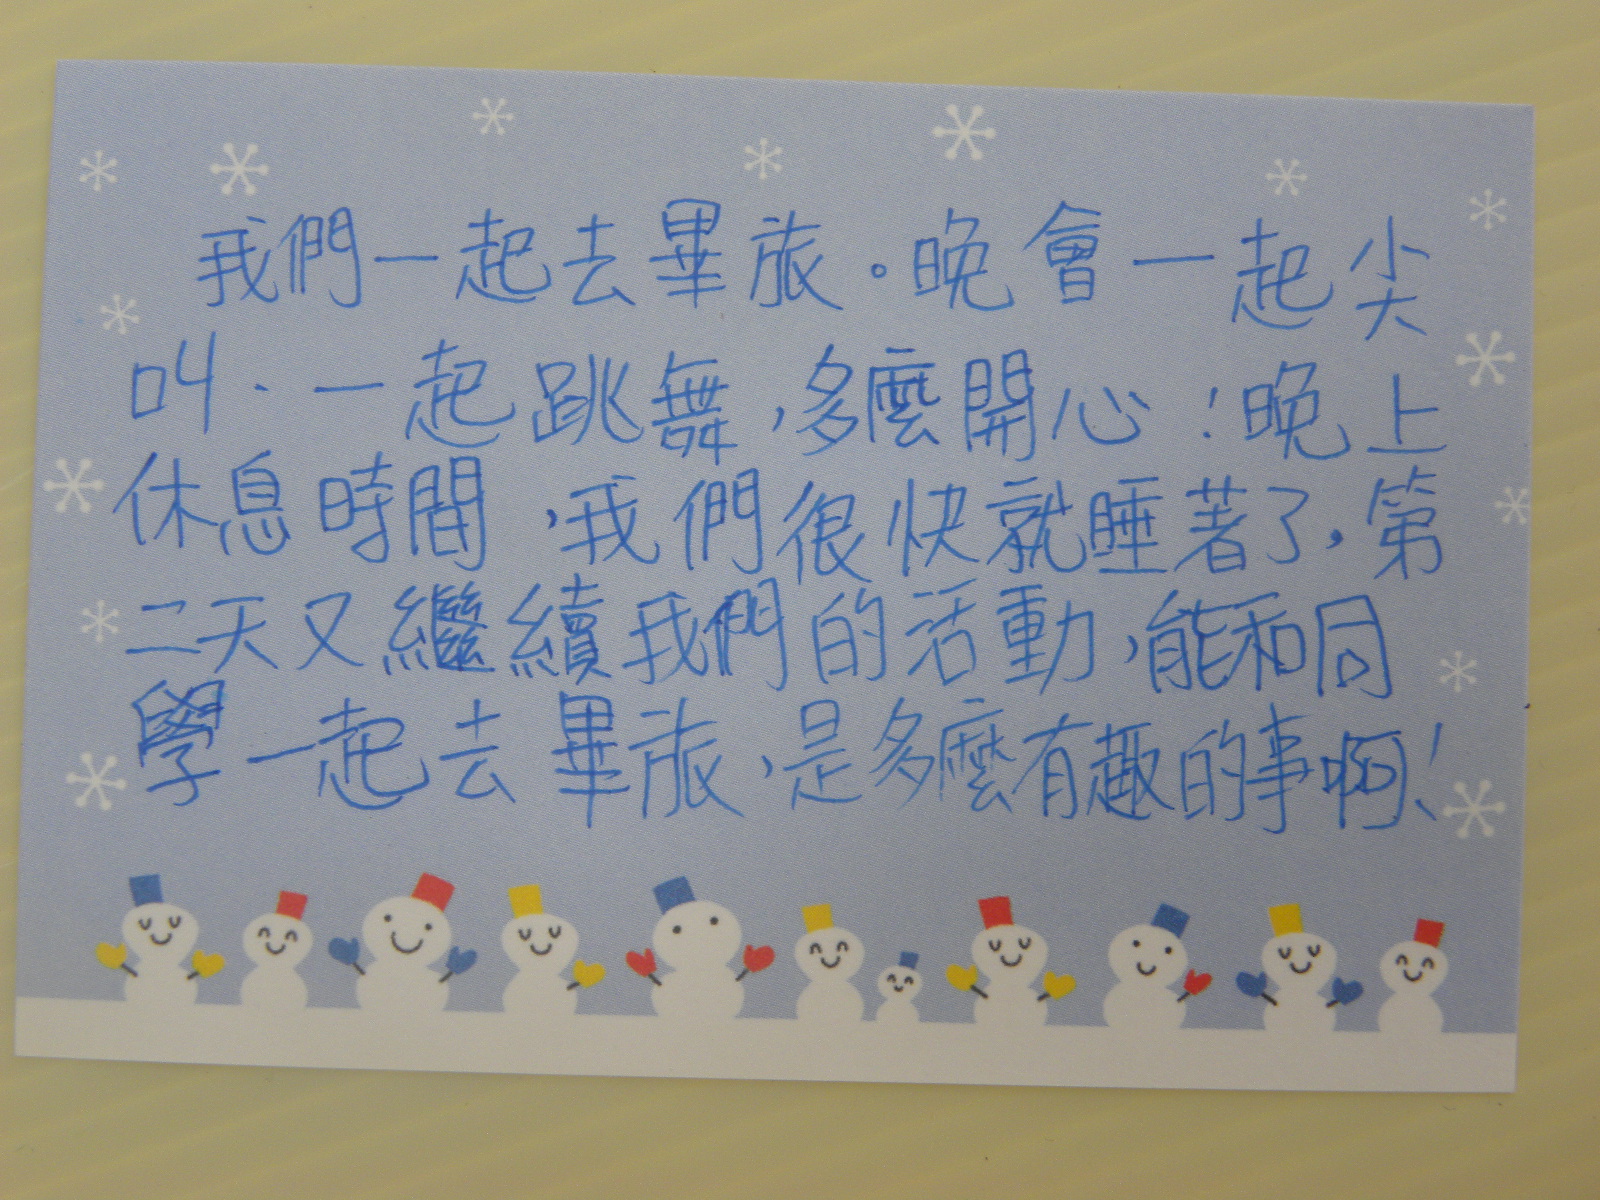 我們一起去畢旅。晚會一起尖
叫、一起跳舞,多麼開心!晚上
休息時間,我們很快就睡著了,第
二天又繼續我們的活動,能和同
學一起去畢旅,是多麼有趣的事啊!